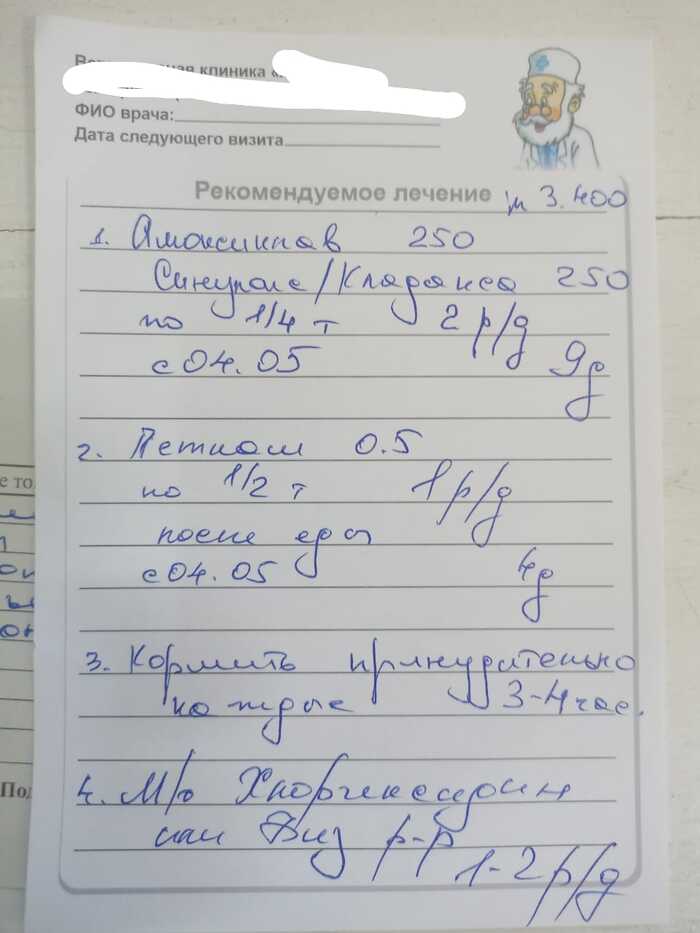 клиника «
ФИО врача:
Дата следующего визита
Рекомендуемое лечение м 3.400
1. Амоксиклав 250
Синулокс/Кладакса 250
по 1/4 т 2 р/д
с 04.05 9д
2. Петкам 0.5
по 1/2 т 1 р/д
после еды
с 04.05 4д
3. Кормить принудительно
каждые 3-4 час.
4. М/о Хлоргексидин
или Диз р-р
1-2 р/д